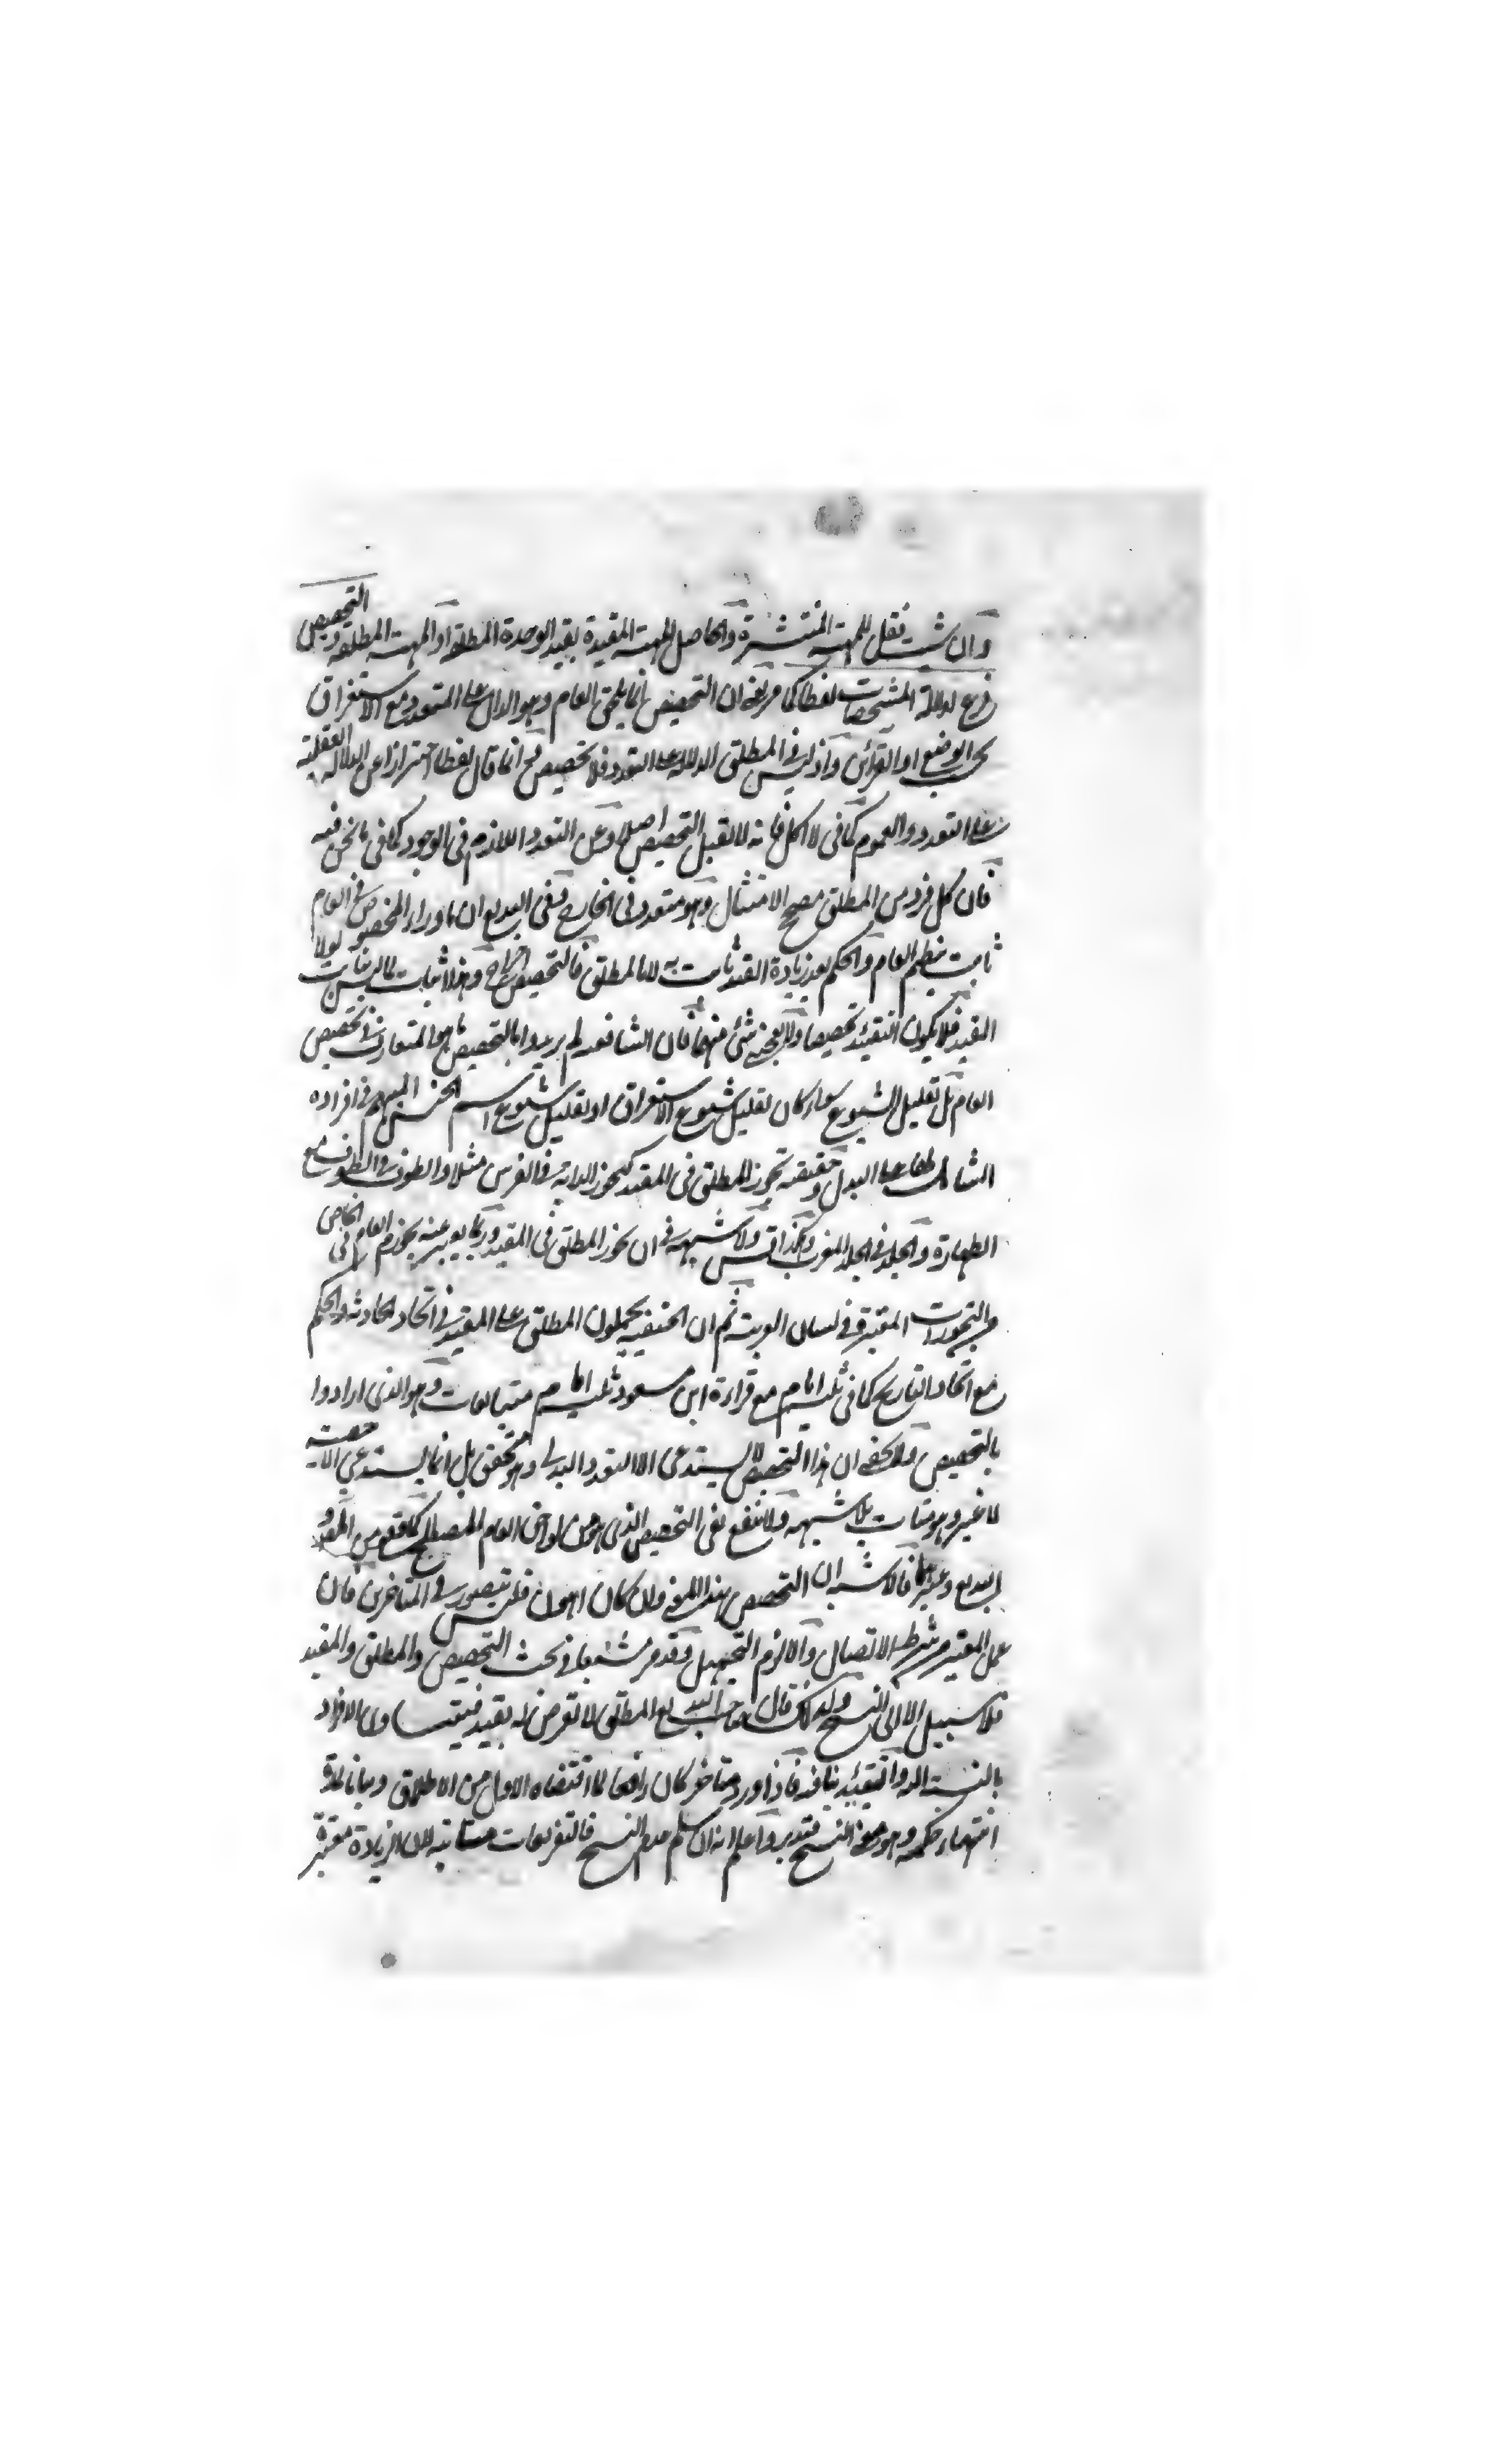 وان شئت فقل للمهية المنتشرة والحاصل المهية المقيدة بقيد الوحدة المطلقة او المهية المطلقة والتخصيص
فرع لدلالة المشخصات لفظا كما مر يعني ان التخصيص انما يلحق العام وهو الدال على المتعدد مع الاستغراق
بحسب الوضع او القرائن واذ ليس في المطلق الدلالة على التعدد فلا تخصيص ثم انما قال لفظا احترازا عن الدلالة العقلية
على التعدد والعموم كما في لا اكل فانه لا يقبل التخصيص اصلا وعن التعدد اللازم في الوجود كما في ما نحن فيه
فان كل فرد من المطلق مصحح الامتثال وهو متعدد في الخارج وفي البديع ان ما وراء المخصوص في العام
ثابت بنظم العام والحكم بعد زيادة القيد ثابت به لا بالمطلق فالتخصيص اخراج وهذا اثبات لما ليس بثابت لولا
القيد فلا يكون التقييد تخصيصا ولا يعجبني شيء منهما فان الشافعية لم يريدوا بالتخصيص ما هو المتعارف في تخصيص
العام بل تقليل الشيوع سواء كان تقليل شيوع الاستغراق او تقليل شيوع اسم الجنس المبهم في افراده
الشاملة لها على البدل وحقيقته تجوز المطلق في المقيد كتجوز الدابة في الفرس مثلا والطوف في الطوف مع
الطهارة والجلد في الجلد المغرب وهكذا قس ولا شبهة في ان تجوز المطلق في المقيد وربما يعبر عنه بتجوز العام في الخاص
من التجوزات المعتبرة في لسان العربية ثم ان الحنفية يحملون المطلق على المقيد في اتحاد الحادثة والحكم
مع اتحاد التاريخ كما في ثلثة ايام مع قراءة ابن مسعود ثلثة ايام متتابعات وهو الذي ارادوا
بالتخصيص ولا يخفى ان هذا التخصيص لا يستدعي الا التعدد البدلي وهو متحقق بل انما يستدعي الاحصة
لا غير وهو ثابت بلا شبهة ولا ينفع نفي التخصيص الذي هو من لواحق العام المصطلح كما وقع من المصنف و
البديع وغيرهما فالاشبه ان التخصيص بهذا المعنى وان كان اهون فليس يتصور في المتاخر فان
عمل المغير مشرطه الاتصال والا لزم التجهيل وقد مر مشبعا في بحث التخصيص والمطلق والمقيد
فلا سبيل الا الى النسخ ولذلك قال صاحب البديع المطلق لا تعرض له بقيد فيتساوى الافراد
بالنسبة اليه والتقييد ينافيه فاذا ورد متاخر كان رافعا لما اقتضاه الاول من الاطلاق وبيانا لمدة
انتهاء حكمه وهو معنى النسخ فتدبر واعلم انه ان سلم عدم النسخ فالتفريعات ثابتة لان الزيادة مغيرة